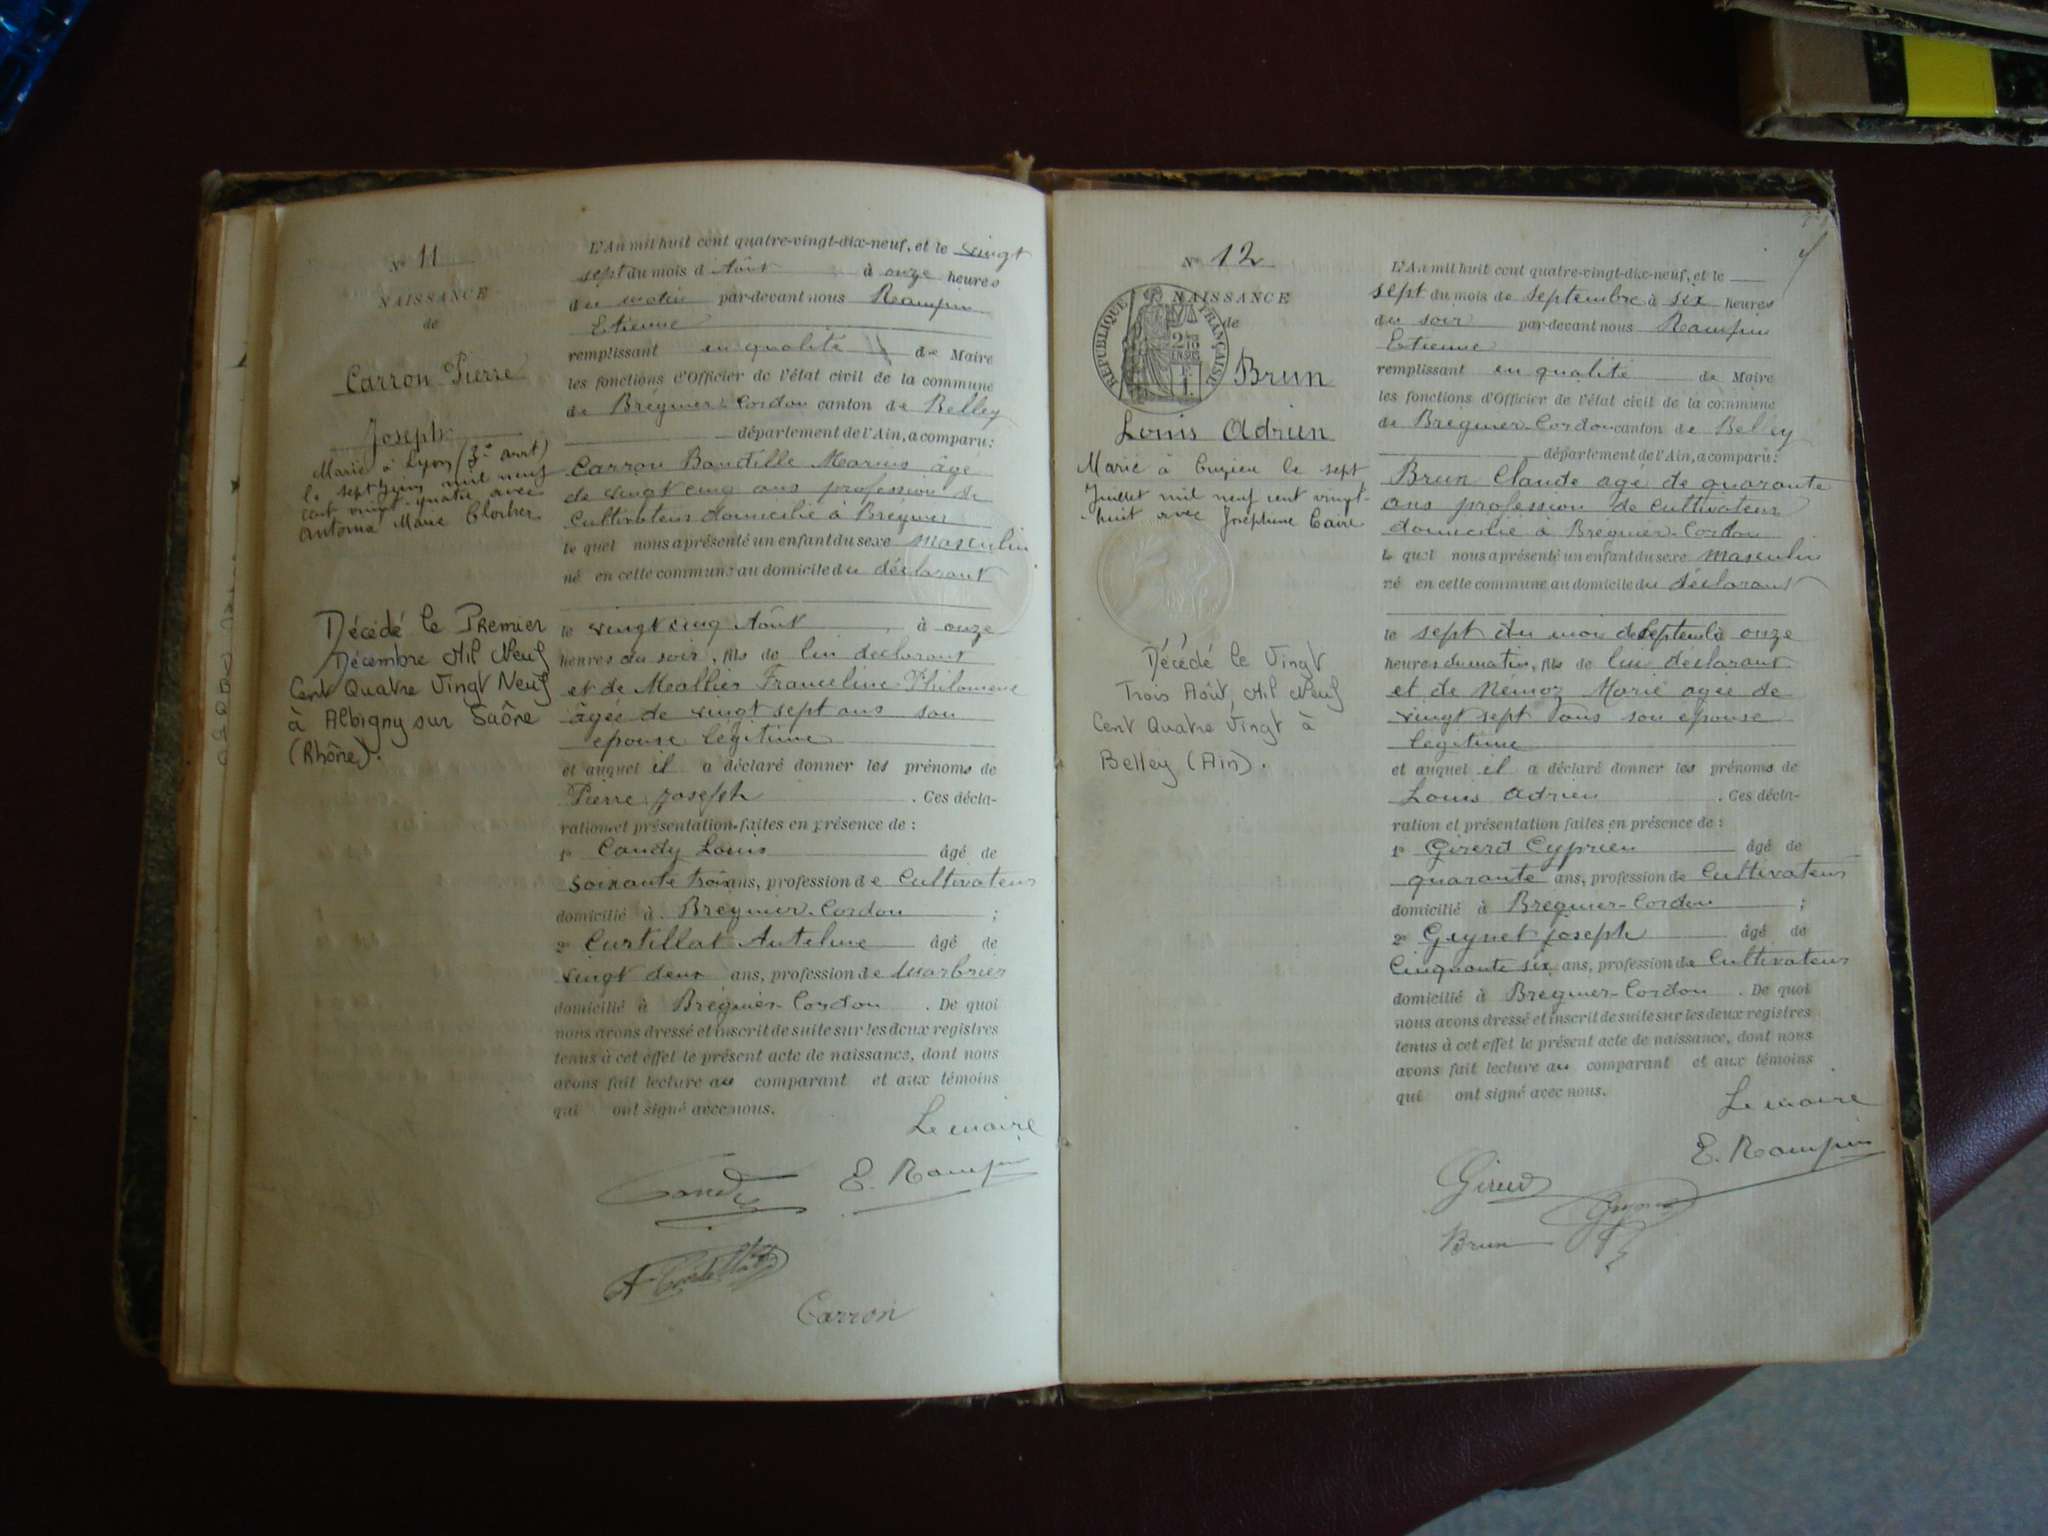 No 11
NAISSANCE
de
Carron Pierre
Joseph
Marié à Lyon (3e arrt)
le sept juin mil neuf
cent vingt-quatre avec
Antonia Marie
Décédé le Premier
Décembre Mil Neuf
Cent Quatre Vingt Neuf
à Albigny sur Saône
(Rhône).
L'An mil huit cent quatre-vingt-dix-neuf, et le vingt
sept du mois d'Août à onze heures
du matin par-devant nous Rampin
Etienne
remplissant en qualité de Maire
les fonctions d'Officier de l'état civil de la commune
de Brégnier-Cordon canton de Belley
département de l'Ain, a comparu:
Carron Baudille Marius âgé
de vingt cinq ans profession de
Cultivateur domicilié à Brégnier
le quel nous a présenté un enfant du sexe masculin
né en cette commune au domicile du déclarant
le vingt cinq Août à onze
heures du soir, fils de lui déclarant
et de Meallier Franceline Philomene
âgée de vingt sept ans son
epouse légitime
et auquel il a déclaré donner les prénoms de
Pierre Joseph. Ces décla-
ration et présentation faites en présence de:
1º Candy Louis âgé de
soixante trois ans, profession de Cultivateur
domicilié à Brégnier-Cordon;
2º Curtillat Antelme âgé de
vingt deux ans, profession de Marbrier
domicilié à Brégnier-Cordon. De quoi
nous avons dressé et inscrit de suite sur les deux registres
tenus à cet effet le présent acte de naissance, dont nous
avons fait lecture au comparant et aux témoins
qui ont signé avec nous.
Le maire
Candy E. Rampin
A Curtillat
Carron
No 12
NAISSANCE
de
RÉPUBLIQUE FRANÇAISE
2/10 EN SUS
Brun
Louis Adrien
Marié à Cuzieu le sept
Juillet mil neuf cent vingt-
huit avec Joséphine Caire
Décédé le Vingt
Trois Août Mil Neuf
Cent Quatre Vingt à
Belley (Ain).
L'An mil huit cent quatre-vingt-dix-neuf, et le
sept du mois de septembre à six heures
du soir par-devant nous Rampin
Etienne
remplissant en qualité de Maire
les fonctions d'Officier de l'état civil de la commune
de Brégnier-Cordon canton de Belley
département de l'Ain, a comparu:
Brun Claude agé de quarante
ans profession de Cultivateur
domicilié à Brégnier-Cordon
le quel nous a présenté un enfant du sexe masculin
né en cette commune au domicile du déclarant
le sept du moi de septembre à onze
heures du matin, fils de lui déclarant
et de Némoz Marie agée de
vingt sept ans son epouse
légitime
et auquel il a déclaré donner les prénoms de
Louis Adrien. Ces décla-
ration et présentation faites en présence de:
1º Girerd Cyprien âgé de
quarante ans, profession de Cultivateur
domicilié à Brégnier-Cordon;
2º Guynet Joseph âgé de
Cinquante six ans, profession de Cultivateur
domicilié à Brégnier-Cordon. De quoi
nous avons dressé et inscrit de suite sur les deux registres
tenus à cet effet le présent acte de naissance, dont nous
avons fait lecture au comparant et aux témoins
qui ont signé avec nous.
Le maire
E. Rampin
Girerd Guynet
Brun